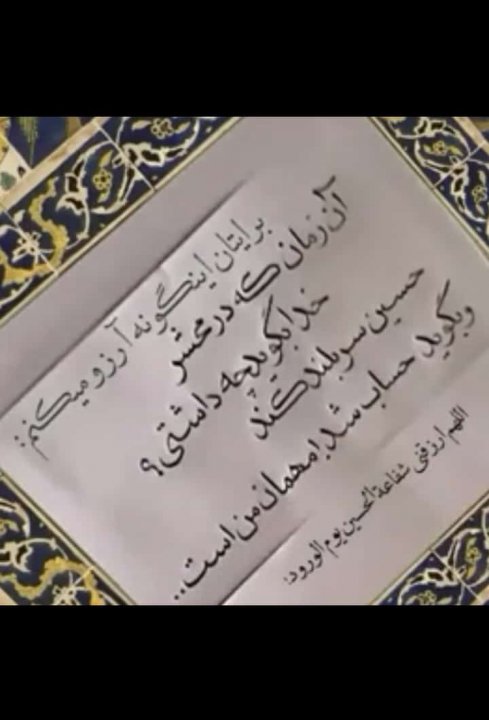 برایتان اینگونه آرزو میکنم:
آن زمان که در محشر
خدا بگوید چه داشتی؟
حسین سر بلند کند
وبگوید حساب شد! مهمان من است..
اللهم ارزقنی شفاعة الحسین یوم الورود.